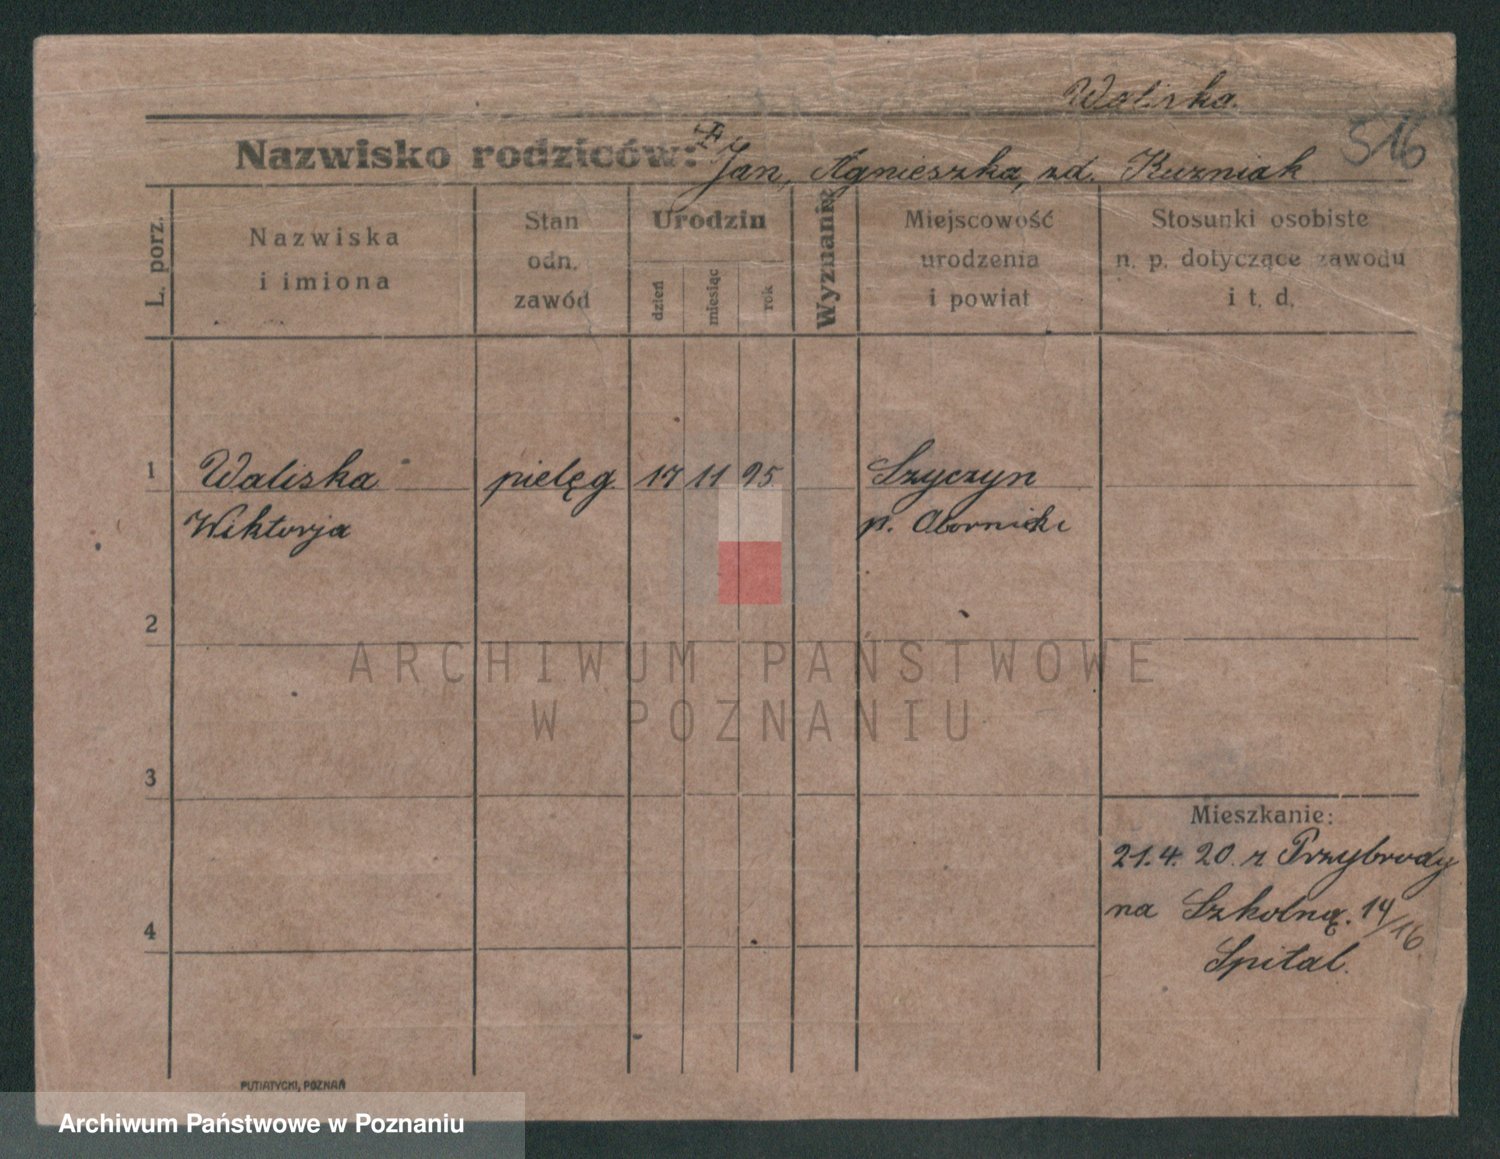 Waliska.
516
Nazwisko rodziców: Jan, Agnieszka, zd. Kuzniak
L. porz.
Nazwiska
i imiona
Stan
odn.
zawód
Urodzin
dzień
miesiąc
rok
Wyznanie
Miejscowość
urodzenia
i powiat
Stosunki osobiste
n. p. dotyczące zawodu
i t. d.
1 Waliska pielęg. 17 11 95 Szyczyn
Wiktorja p. Obornicki
2
ARCHIWUM PAŃSTWOWE
W POZNANIU
3
Mieszkanie:
21.4.20. z Przybrody
na Szkolną. 14/16
4
Szpital.
PUTIATYCKI, POZNAŃ
Archiwum Państwowe w Poznaniu